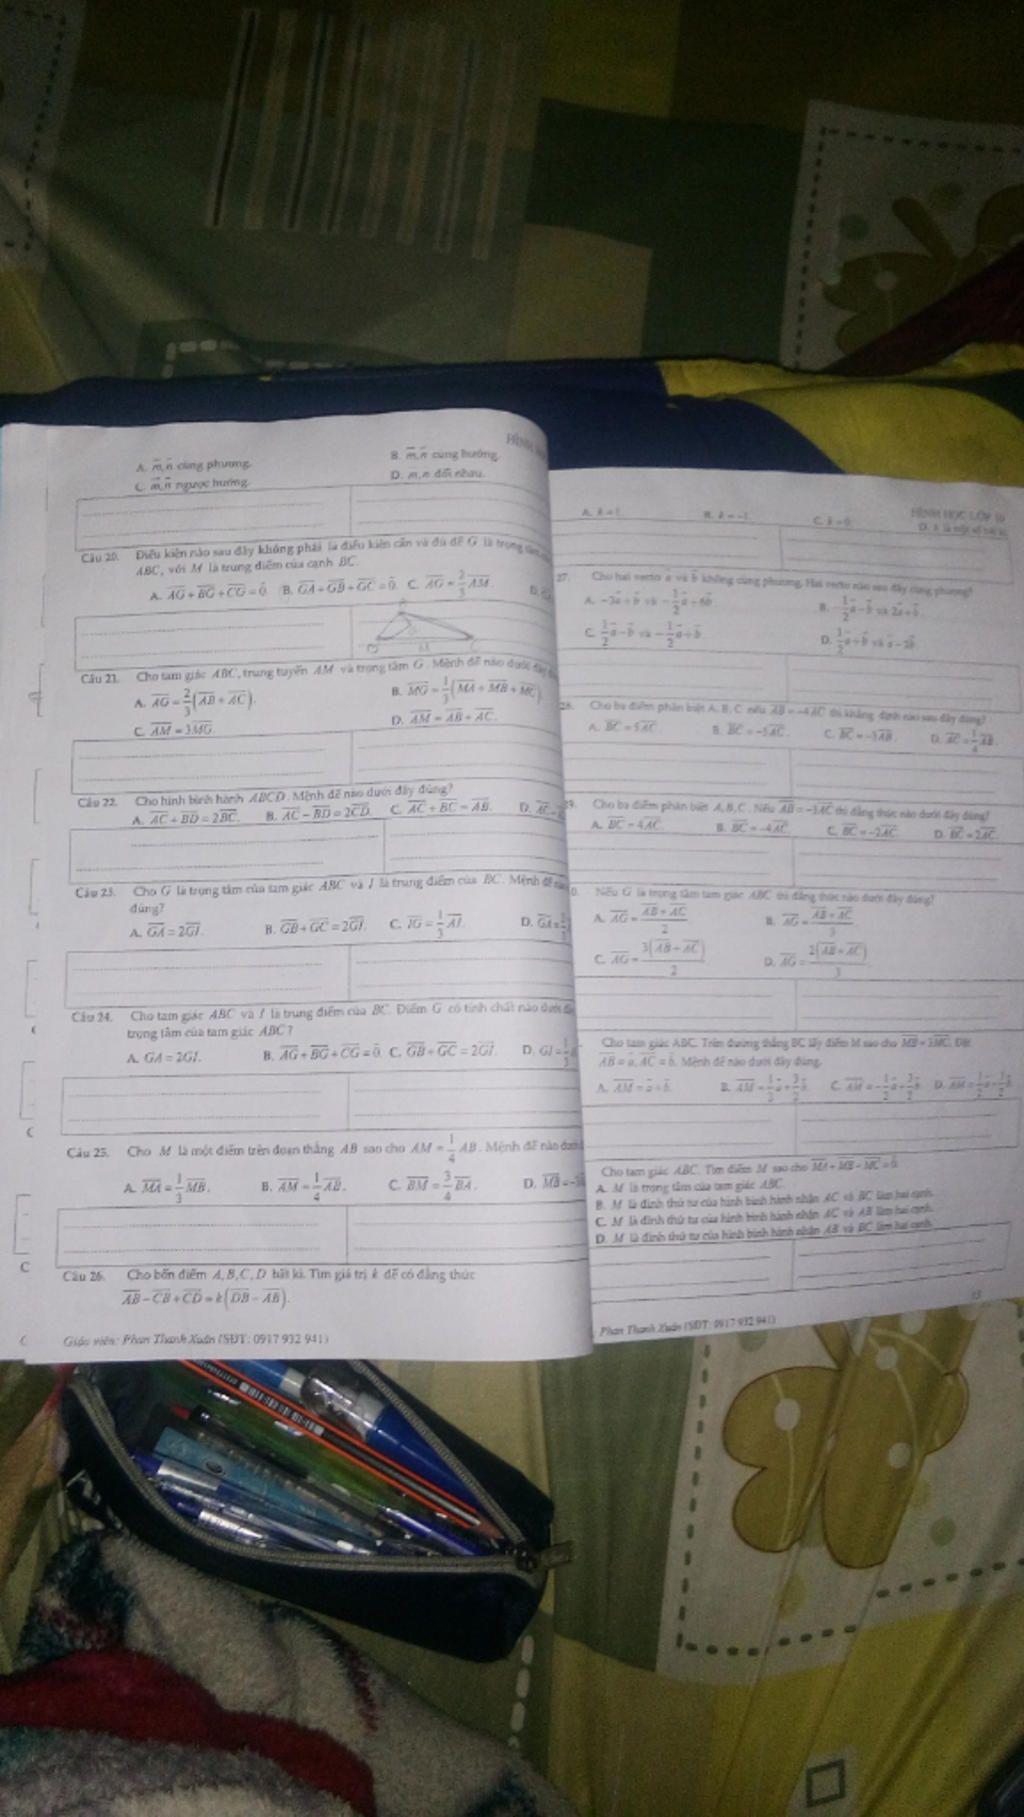 A. m, n cùng phương.
B. m, n cùng hướng.
C. m, n ngược hướng.
D. m, n đối nhau.
Câu 20. Điều kiện nào sau đây không phải là điều kiện cần và đủ để G là trọng
ABC, với M là trung điểm của cạnh BC.
A. AG + BG + CG = 0. B. GA + GB + GC = 0. C. AG = 2/3 AM. D.
Câu 21. Cho tam giác ABC, trung tuyến AM và trọng tâm G. Mệnh đề nào dưới
A. AG = 2/3 (AB + AC). B. MG = 1/3 (MA + MB + MC).
C. AM = 3MG. D. AM = AB + AC.
Câu 22. Cho hình bình hành ABCD. Mệnh đề nào dưới đây đúng?
A. AC + BD = 2BC. B. AC − BD = 2CD. C. AC + BC = AB. D.
Câu 23. Cho G là trọng tâm của tam giác ABC và I là trung điểm của BC. Mệnh đề
đúng?
A. GA = 2GI. B. GB + GC = 2GI. C. IG = 1/3 AI. D.
Câu 24. Cho tam giác ABC và I là trung điểm của BC. Điểm G có tính chất nào dưới
trọng tâm của tam giác ABC?
A. GA = 2GI. B. AG + BG + CG = 0. C. GB + GC = 2GI. D. GI = 1/3
Câu 25. Cho M là một điểm trên đoạn thẳng AB sao cho AM = 1/4 AB. Mệnh đề nào
A. MA = 1/3 MB. B. AM = 1/4 AB. C. BM = 3/4 BA. D. MB =
Câu 26. Cho bốn điểm A, B, C, D bất kì. Tìm giá trị k để có đẳng thức
AB − CB + CD = k(DB − AB).
Giáo viên: Phan Thanh Xuân (SĐT: 0917 932 941)
HÌNH HỌC LỚP 10
A. k = 1. B. k = −1. C. k = 0.
27. Cho hai vectơ a và b không cùng phương. Hai vectơ nào sau đây cùng phương?
28. Cho ba điểm phân biệt A, B, C nếu AB = −4AC thì khẳng định nào sau đây đúng?
A. BC = 5AC. B. BC = −5AC. C. BC = −3AB. D. AC = 1/4 AB.
29. Cho ba điểm phân biệt A, B, C. Nếu AB = −3AC thì đẳng thức nào dưới đây đúng?
A. BC = 4AC. B. BC = −4AC. C. BC = −2AC. D. BC = 2AC.
0. Nếu G là trọng tâm tam giác ABC thì đẳng thức nào dưới đây đúng?
A. AG = (AB + AC)/2. B. AG = (AB + AC)/3.
C. AG = 3(AB + AC)/2. D. AG = 2(AB + AC)/3.
Cho tam giác ABC. Trên đường thẳng BC lấy điểm M sao cho MB = 3MC. Đặt
AB = a, AC = b. Mệnh đề nào dưới đây đúng.
A. AM = a + b.
Cho tam giác ABC. Tìm điểm M sao cho MA + MB − MC = 0.
A. M là trọng tâm của tam giác ABC.
B. M là đỉnh thứ tư của hình bình hành nhận AC và BC làm hai cạnh.
C. M là đỉnh thứ tư của hình bình hành nhận AC và AB làm hai cạnh.
D. M là đỉnh thứ tư của hình bình hành nhận AB và BC làm hai cạnh.
Phan Thanh Xuân (SĐT: 0917 932 941)